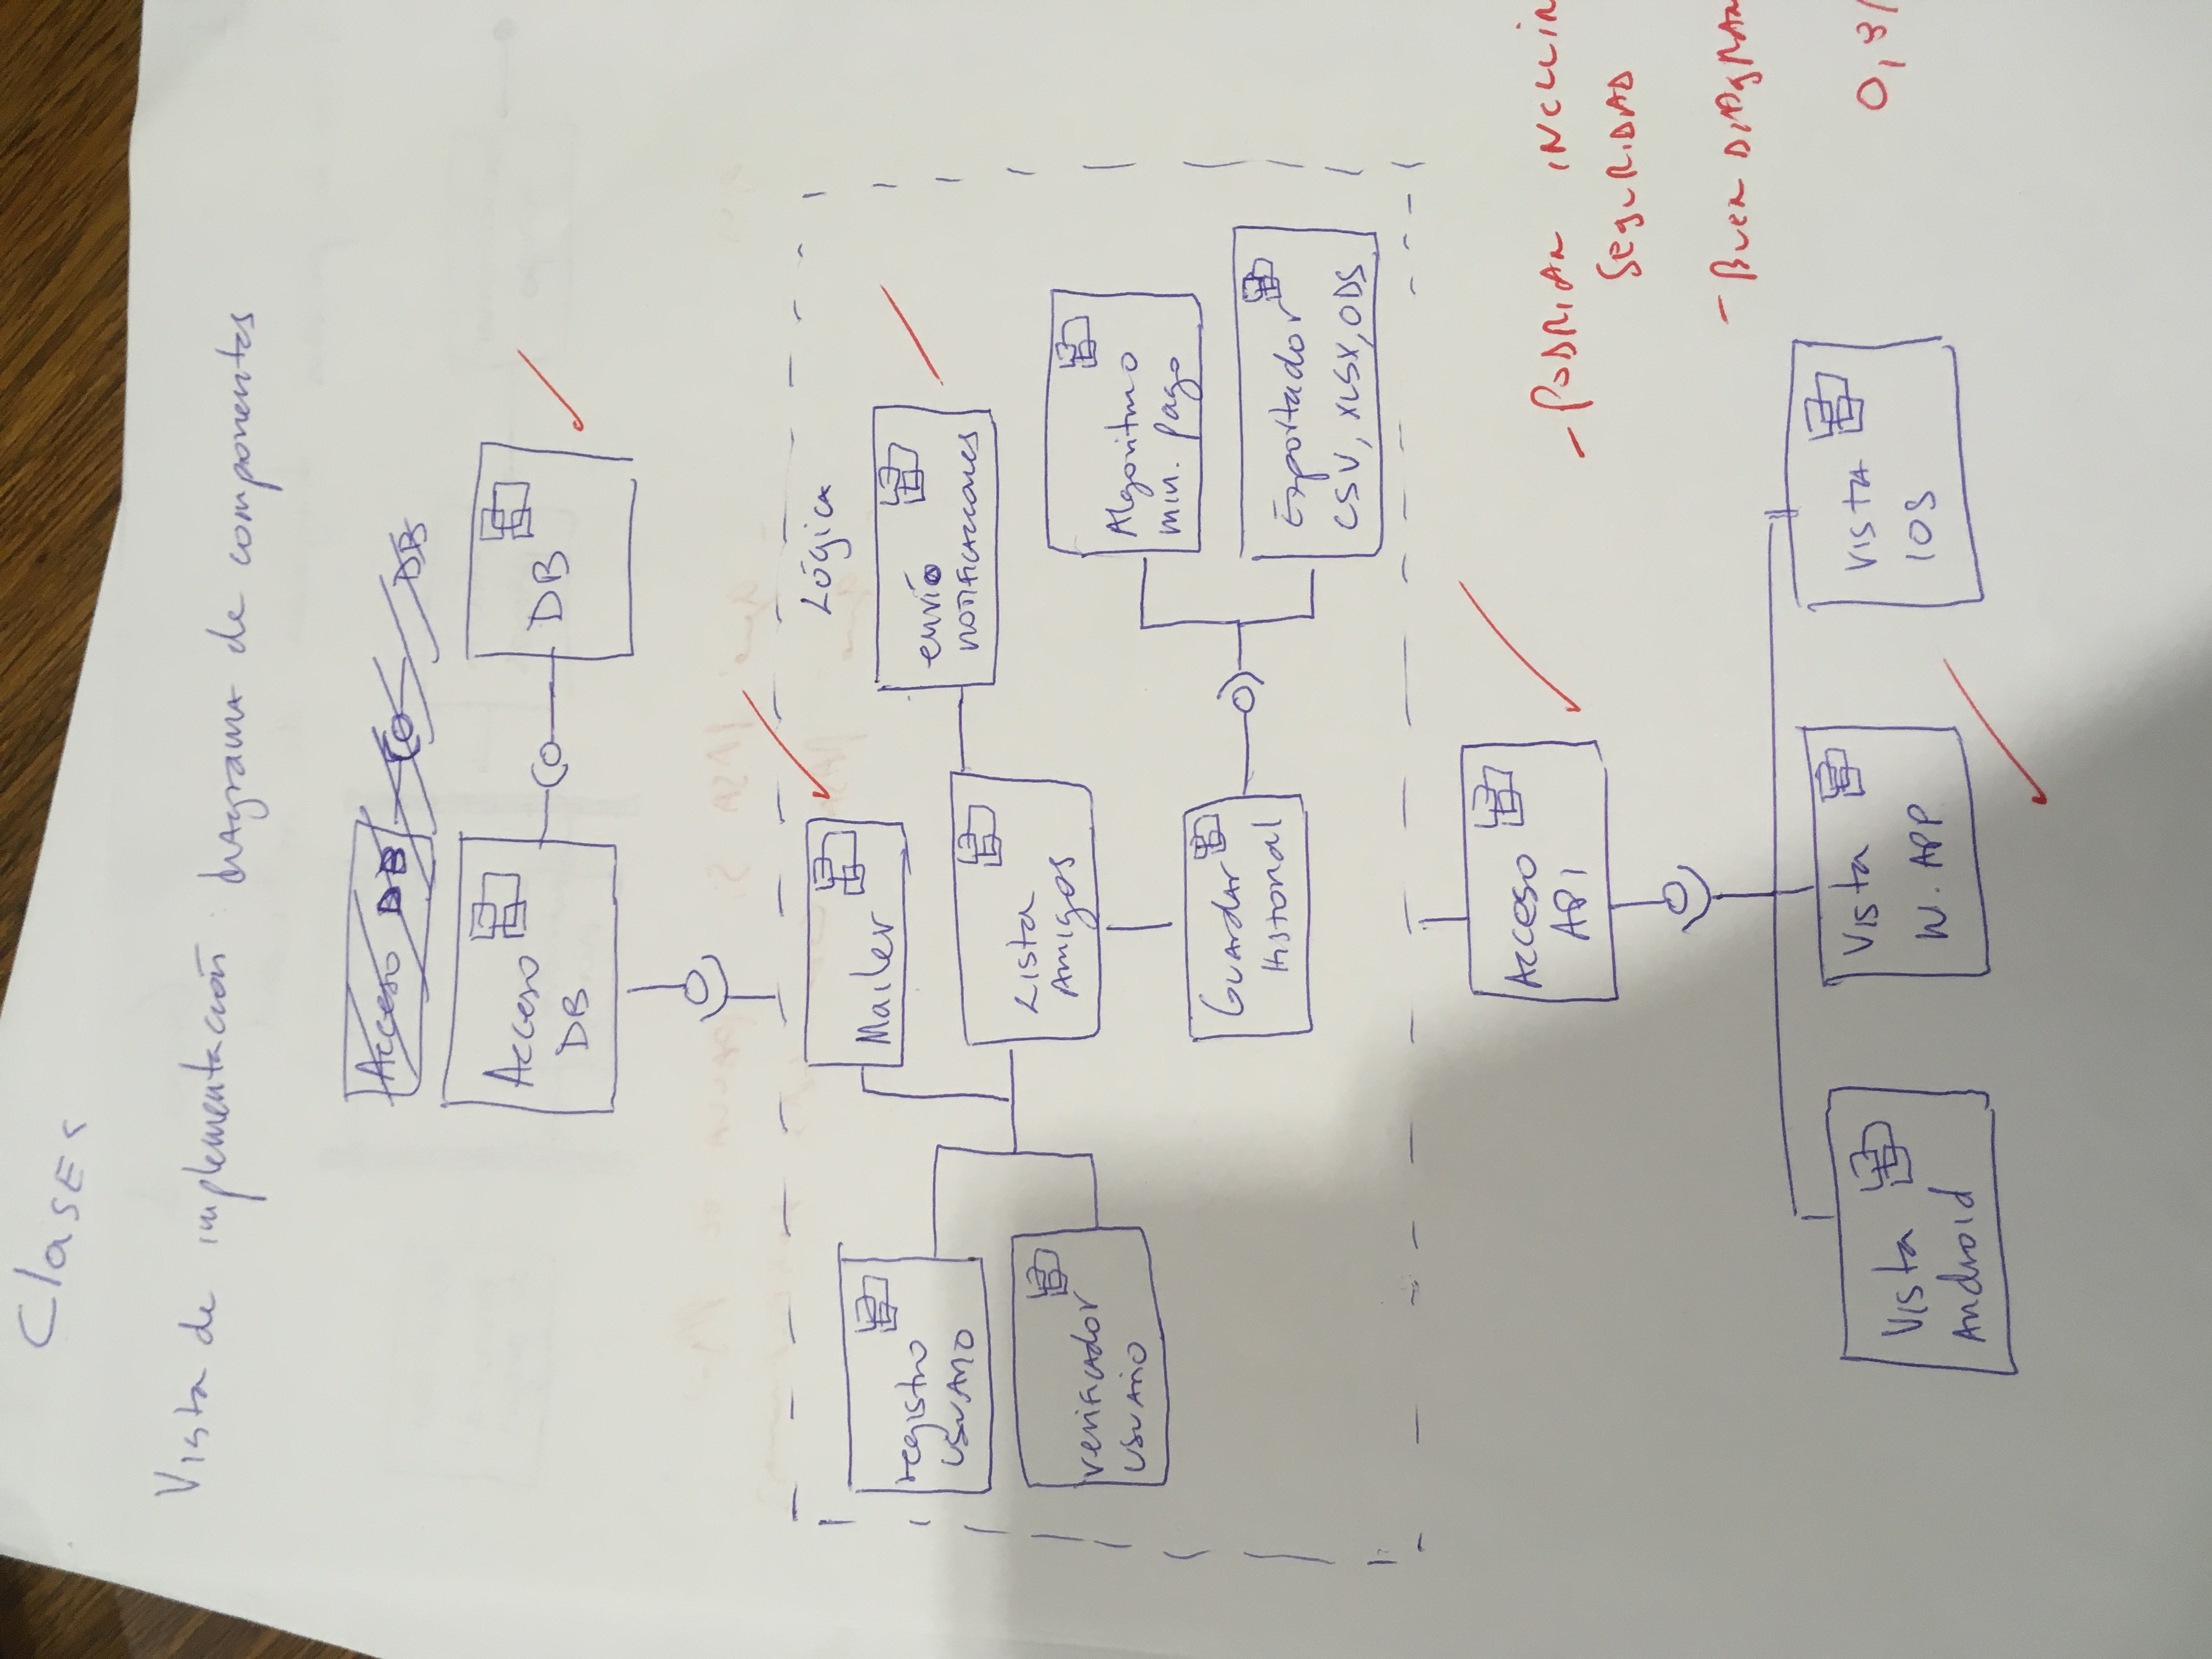 Clases
Vista de implementación: diagrama de componentes
Acceso DB
DB
Acceso
DB
DB
Lógica
Mailer
registro
usuario
envío
notificaciones
Lista
Amigos
verificador
usuario
Algoritmo
min. pago
Guardar
Historial
Exportador
CSV, XLSX, ODS
Acceso
API
- PODRIAN
SEGURIDAD
- BUEN
Vista
Android
Vista
W. APP
Vista
IOS